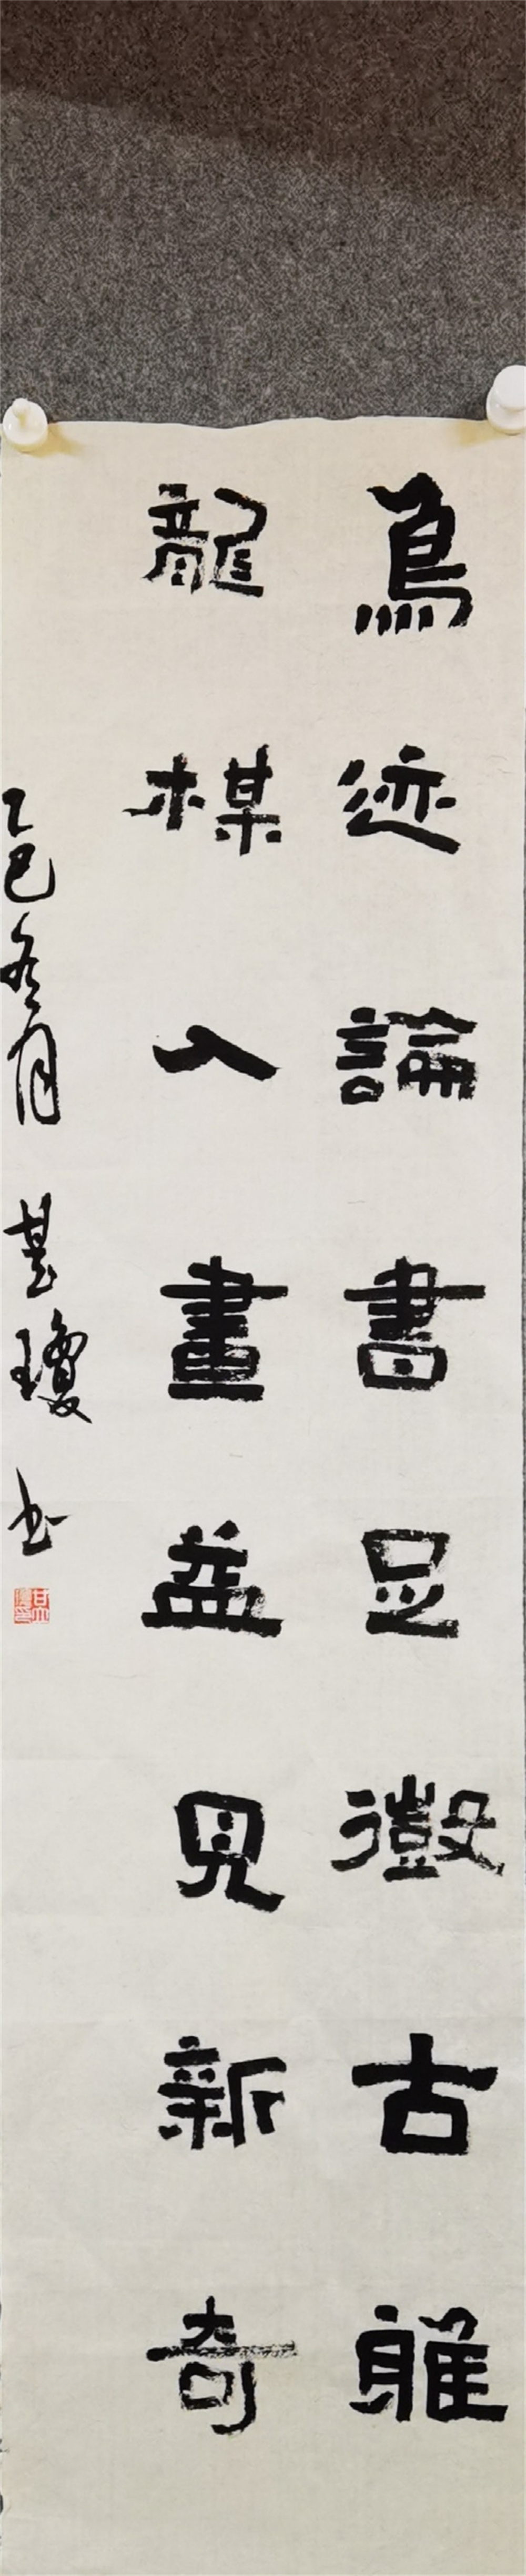 鳥迹論書足徵古雅
龍楳入畫益見新奇
乙巳冬月 瓊 书